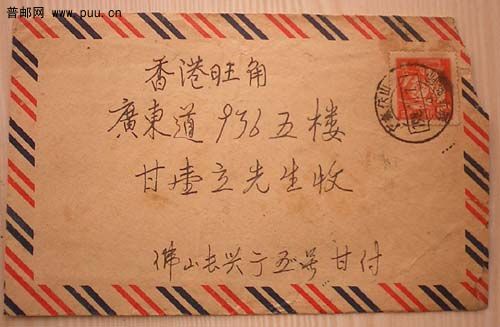 普邮网 www.puu.cn
香港旺角
廣東道936五楼
甘壶立先生收
佛山长兴于五号甘付